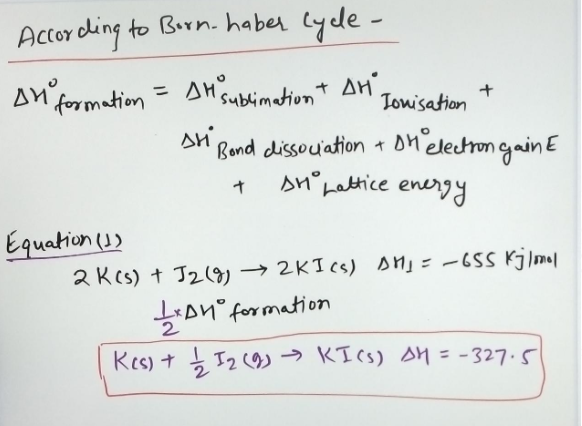 According to Born-haber Cycle -
ΔH° formation = ΔH° sublimation + ΔH° Ionisation +
ΔH° Bond dissociation + ΔH° electron gain E
+ ΔH° Lattice energy
Equation (1)
2K(s) + I2(g) → 2KI(s) ΔH1 = -655 Kj/mol
1/2 × ΔH° formation
K(s) + 1/2 I2(g) → KI(s) ΔH = -327.5